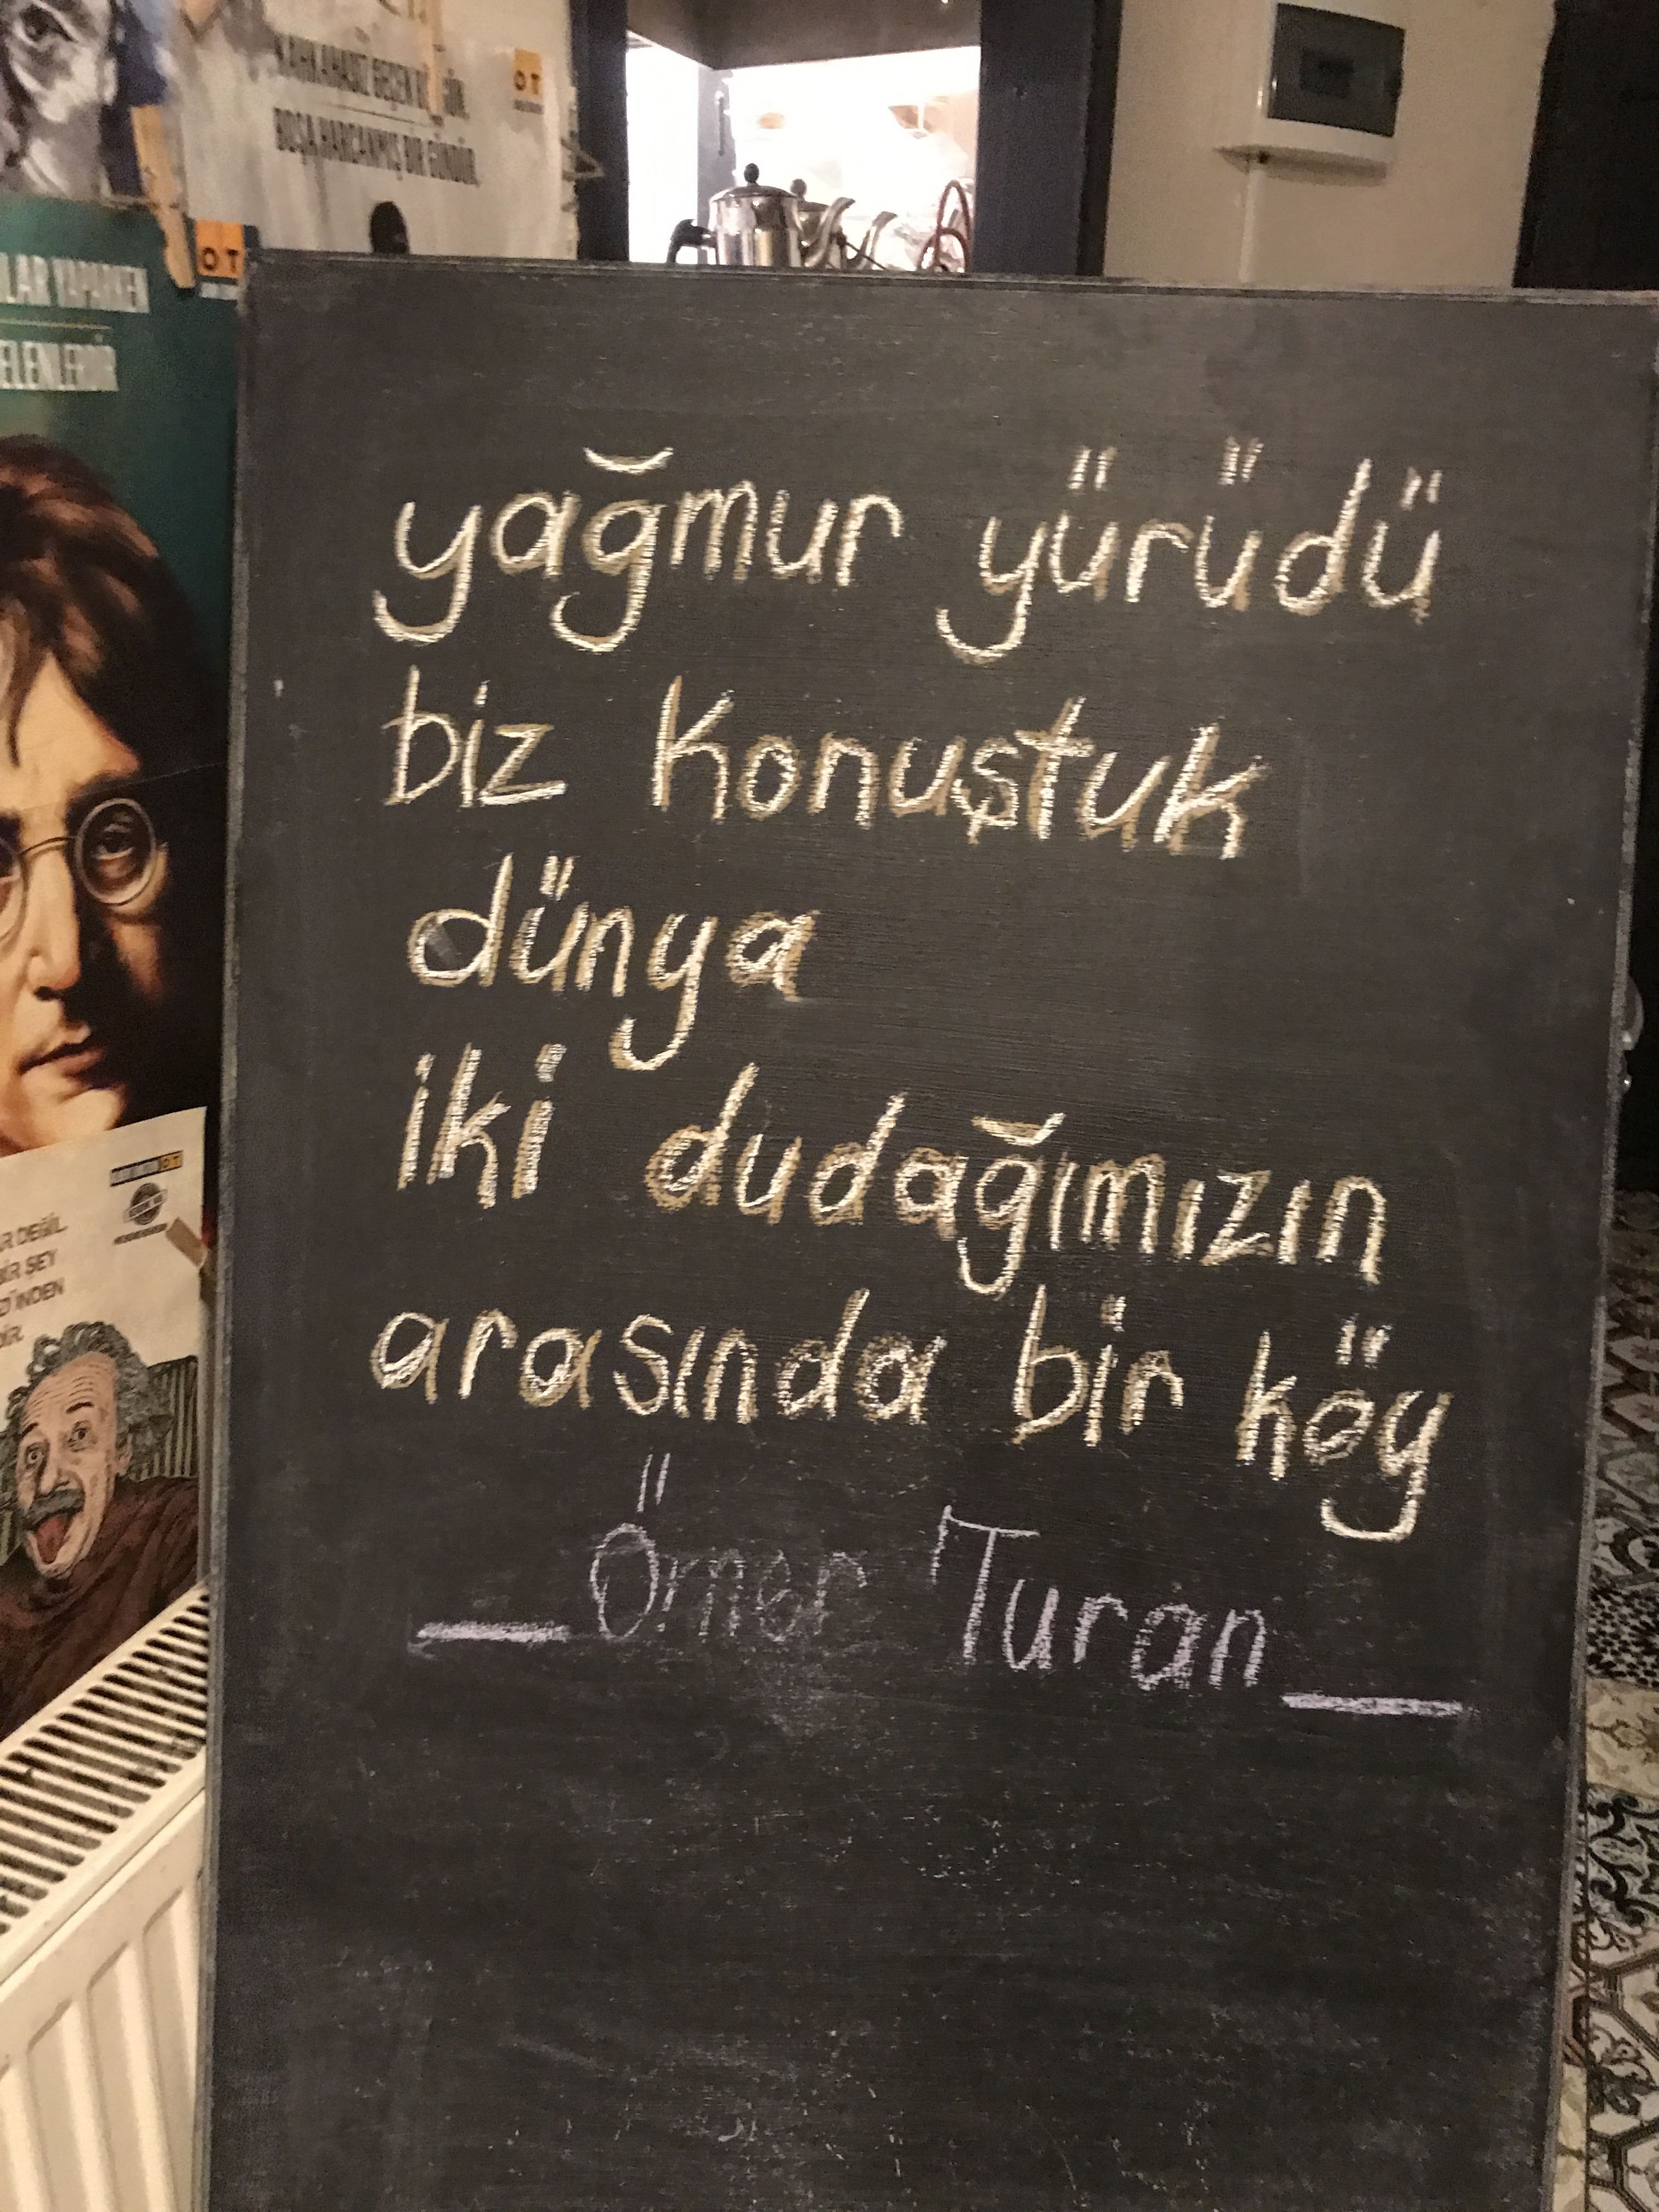 KAHKAHASIZ GEÇEN BİR GÜN,
BOŞA HARCANMIŞ BİR GÜNDÜR.
OT
OT
LAR YAPARKEN
ELENLERDİR
yağmur yürüdü
biz konuştuk
dünya
iki dudağımızın
arasında bir köy
Ömer Turan
OT
R DEĞİL.
BİR ŞEY
D'İNDEN
DİR.